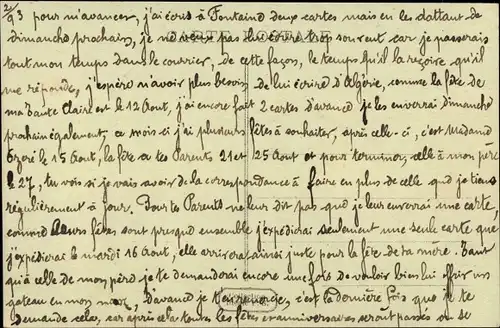 2/
93 pour m'avancer, j'ai écris à Fontaine deux cartes mais en les dattant de
dimanche prochain, je ne veux pas lui écrire trop souvent car je passerais
tout mon temps dans le courrier, de cette façon, le temps qu'il la reçoive qu'il
me réponde, j'espère n'avoir plus besoin de lui écrire d'Algérie, comme la fête de
ma Tante Claire est le 12 Aout, j'ai encore fait 2 cartes d'avance je les enverrai dimanche
prochain également, ce mois-ci j'ai plusieurs fêtes à souhaiter, après celle-ci, c'est Madame
le 15 Aout, la fête a tes Parents 21 et 25 Aout et pour terminer, celle à mon père
le 27, tu vois si je vais avoir de la correspondance à faire en plus de celle que je tiens
régulièrement à jour. Pour tes Parents ne leur dit pas que je leur enverrai une carte,
comme leurs fêtes sont presque ensemble j'expédierai seulement une seule carte que
j'expédierai le mardi 16 Aout, elle arrivera ainsi juste pour la fête de ta mère. Tant
qu'à celle de mon père je te demanderai encore une fois de vouloir bien lui offrir un
gateau en mon nom, d'avance je t'en remercie, c'est la dernière fois que je te
demande cela, car après cela toutes les fêtes et anniversaires seront passés